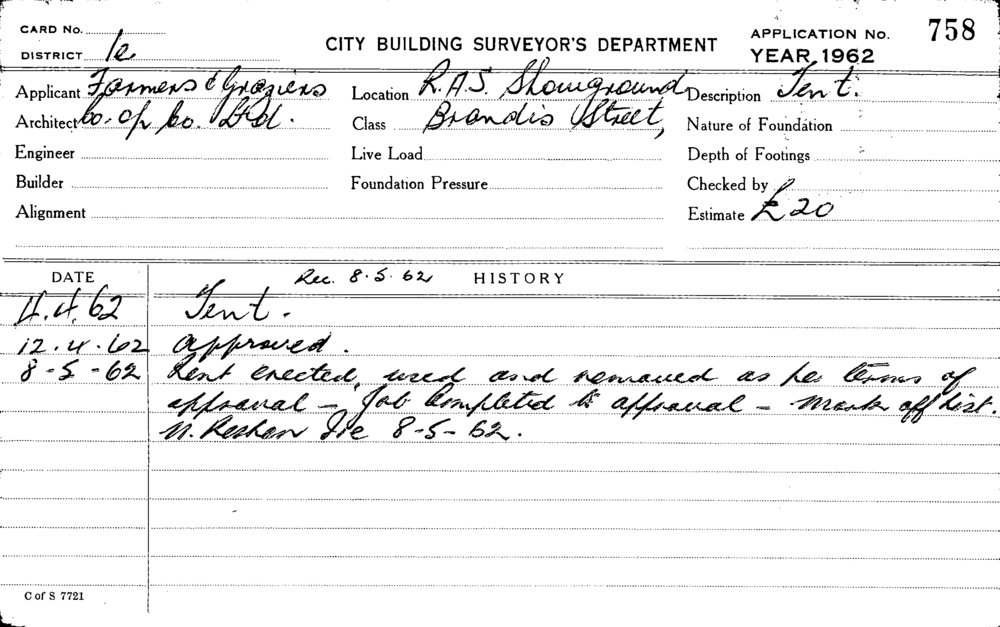 CARD No.
DISTRICT 1e
CITY BUILDING SURVEYOR'S DEPARTMENT
APPLICATION No. 758
YEAR 1962
Applicant Farmers & Graziers
Location R.A.S. Showground
Description Tent.
Architect Co. op Co. Ltd.
Class Brandis Street,
Nature of Foundation
Engineer
Live Load
Depth of Footings
Builder
Foundation Pressure
Checked by
Alignment
Estimate £20
DATE Rec. 8.5.62 HISTORY
4.4.62 Tent.
12.4.62 Approved.
8-5-62 Tent erected, used and removed as per terms of
approval - Job Completed to approval - Mark off List.
8-5-62.
C of S 7721